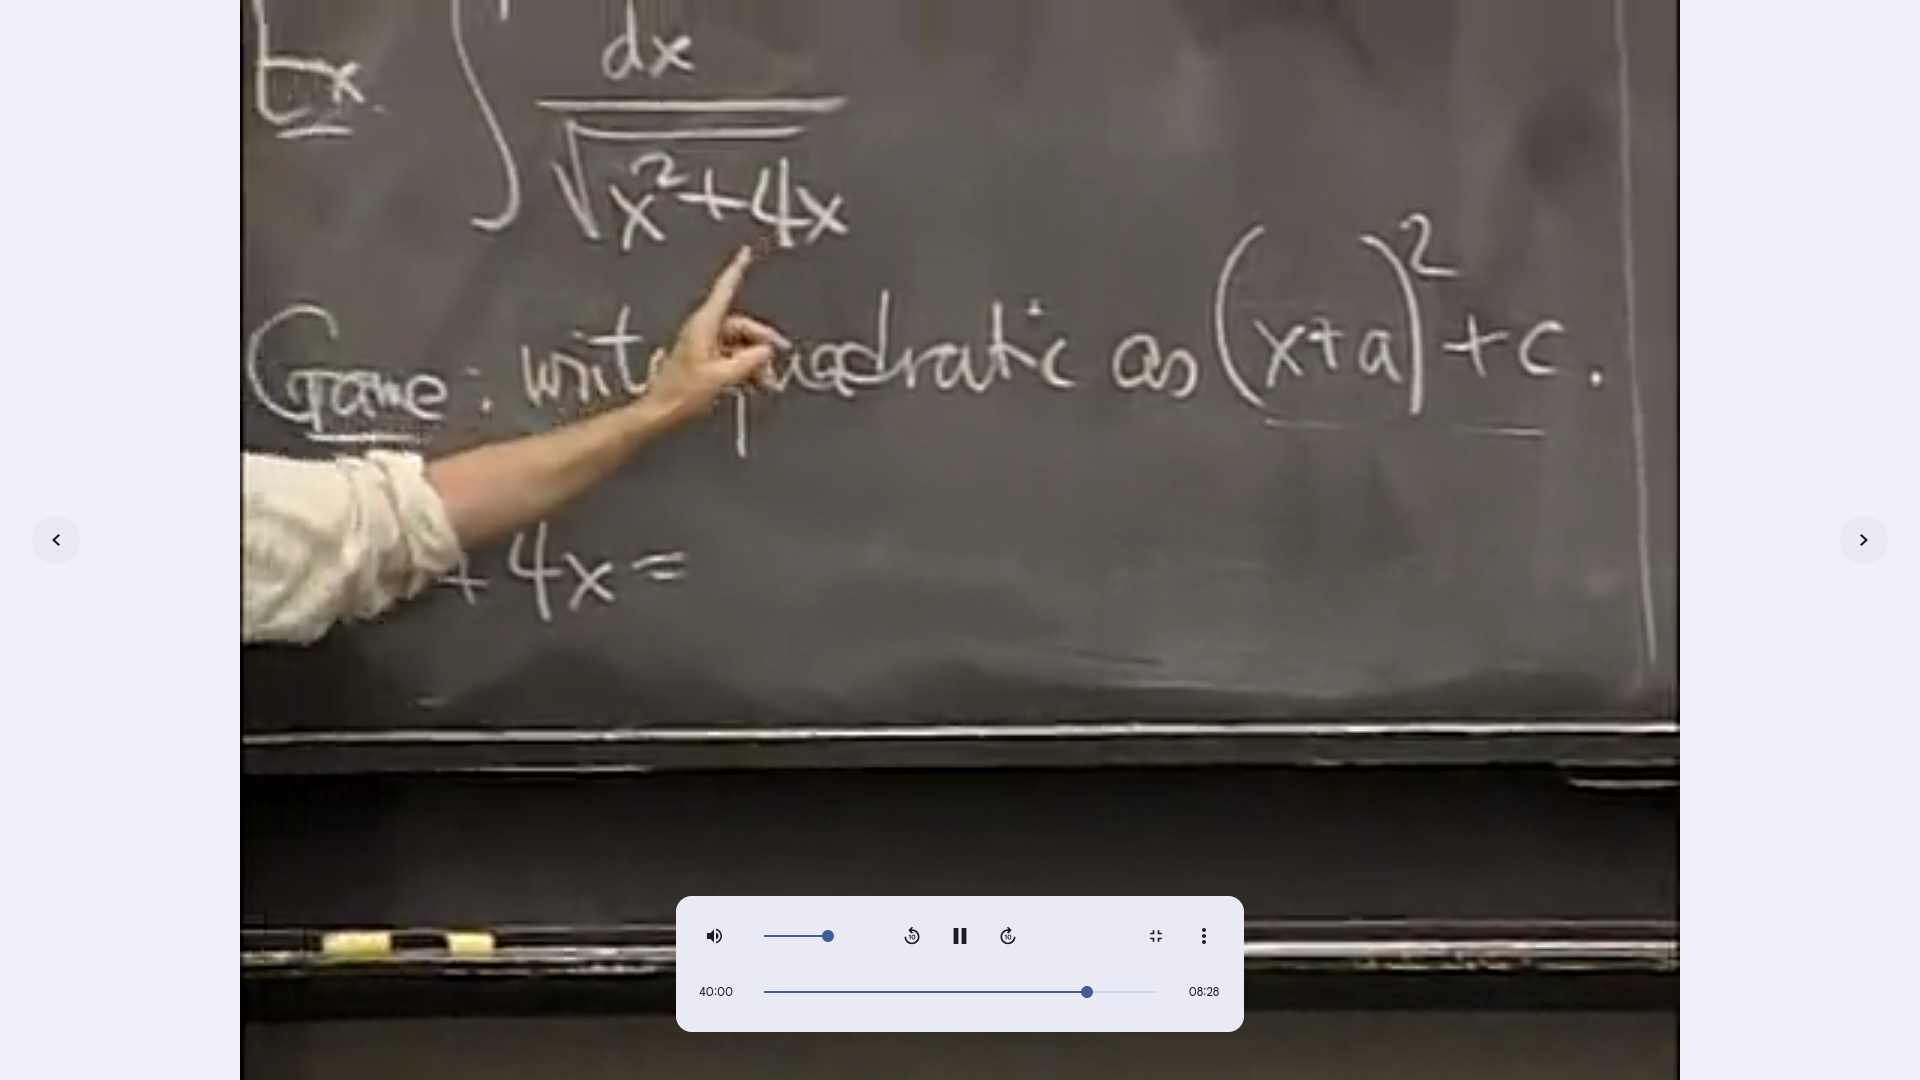 Ex. ∫ dx / √(x² + 4x)
Game: write quadratic as (x+a)² + c.
+ 4x =
40:00
08:28